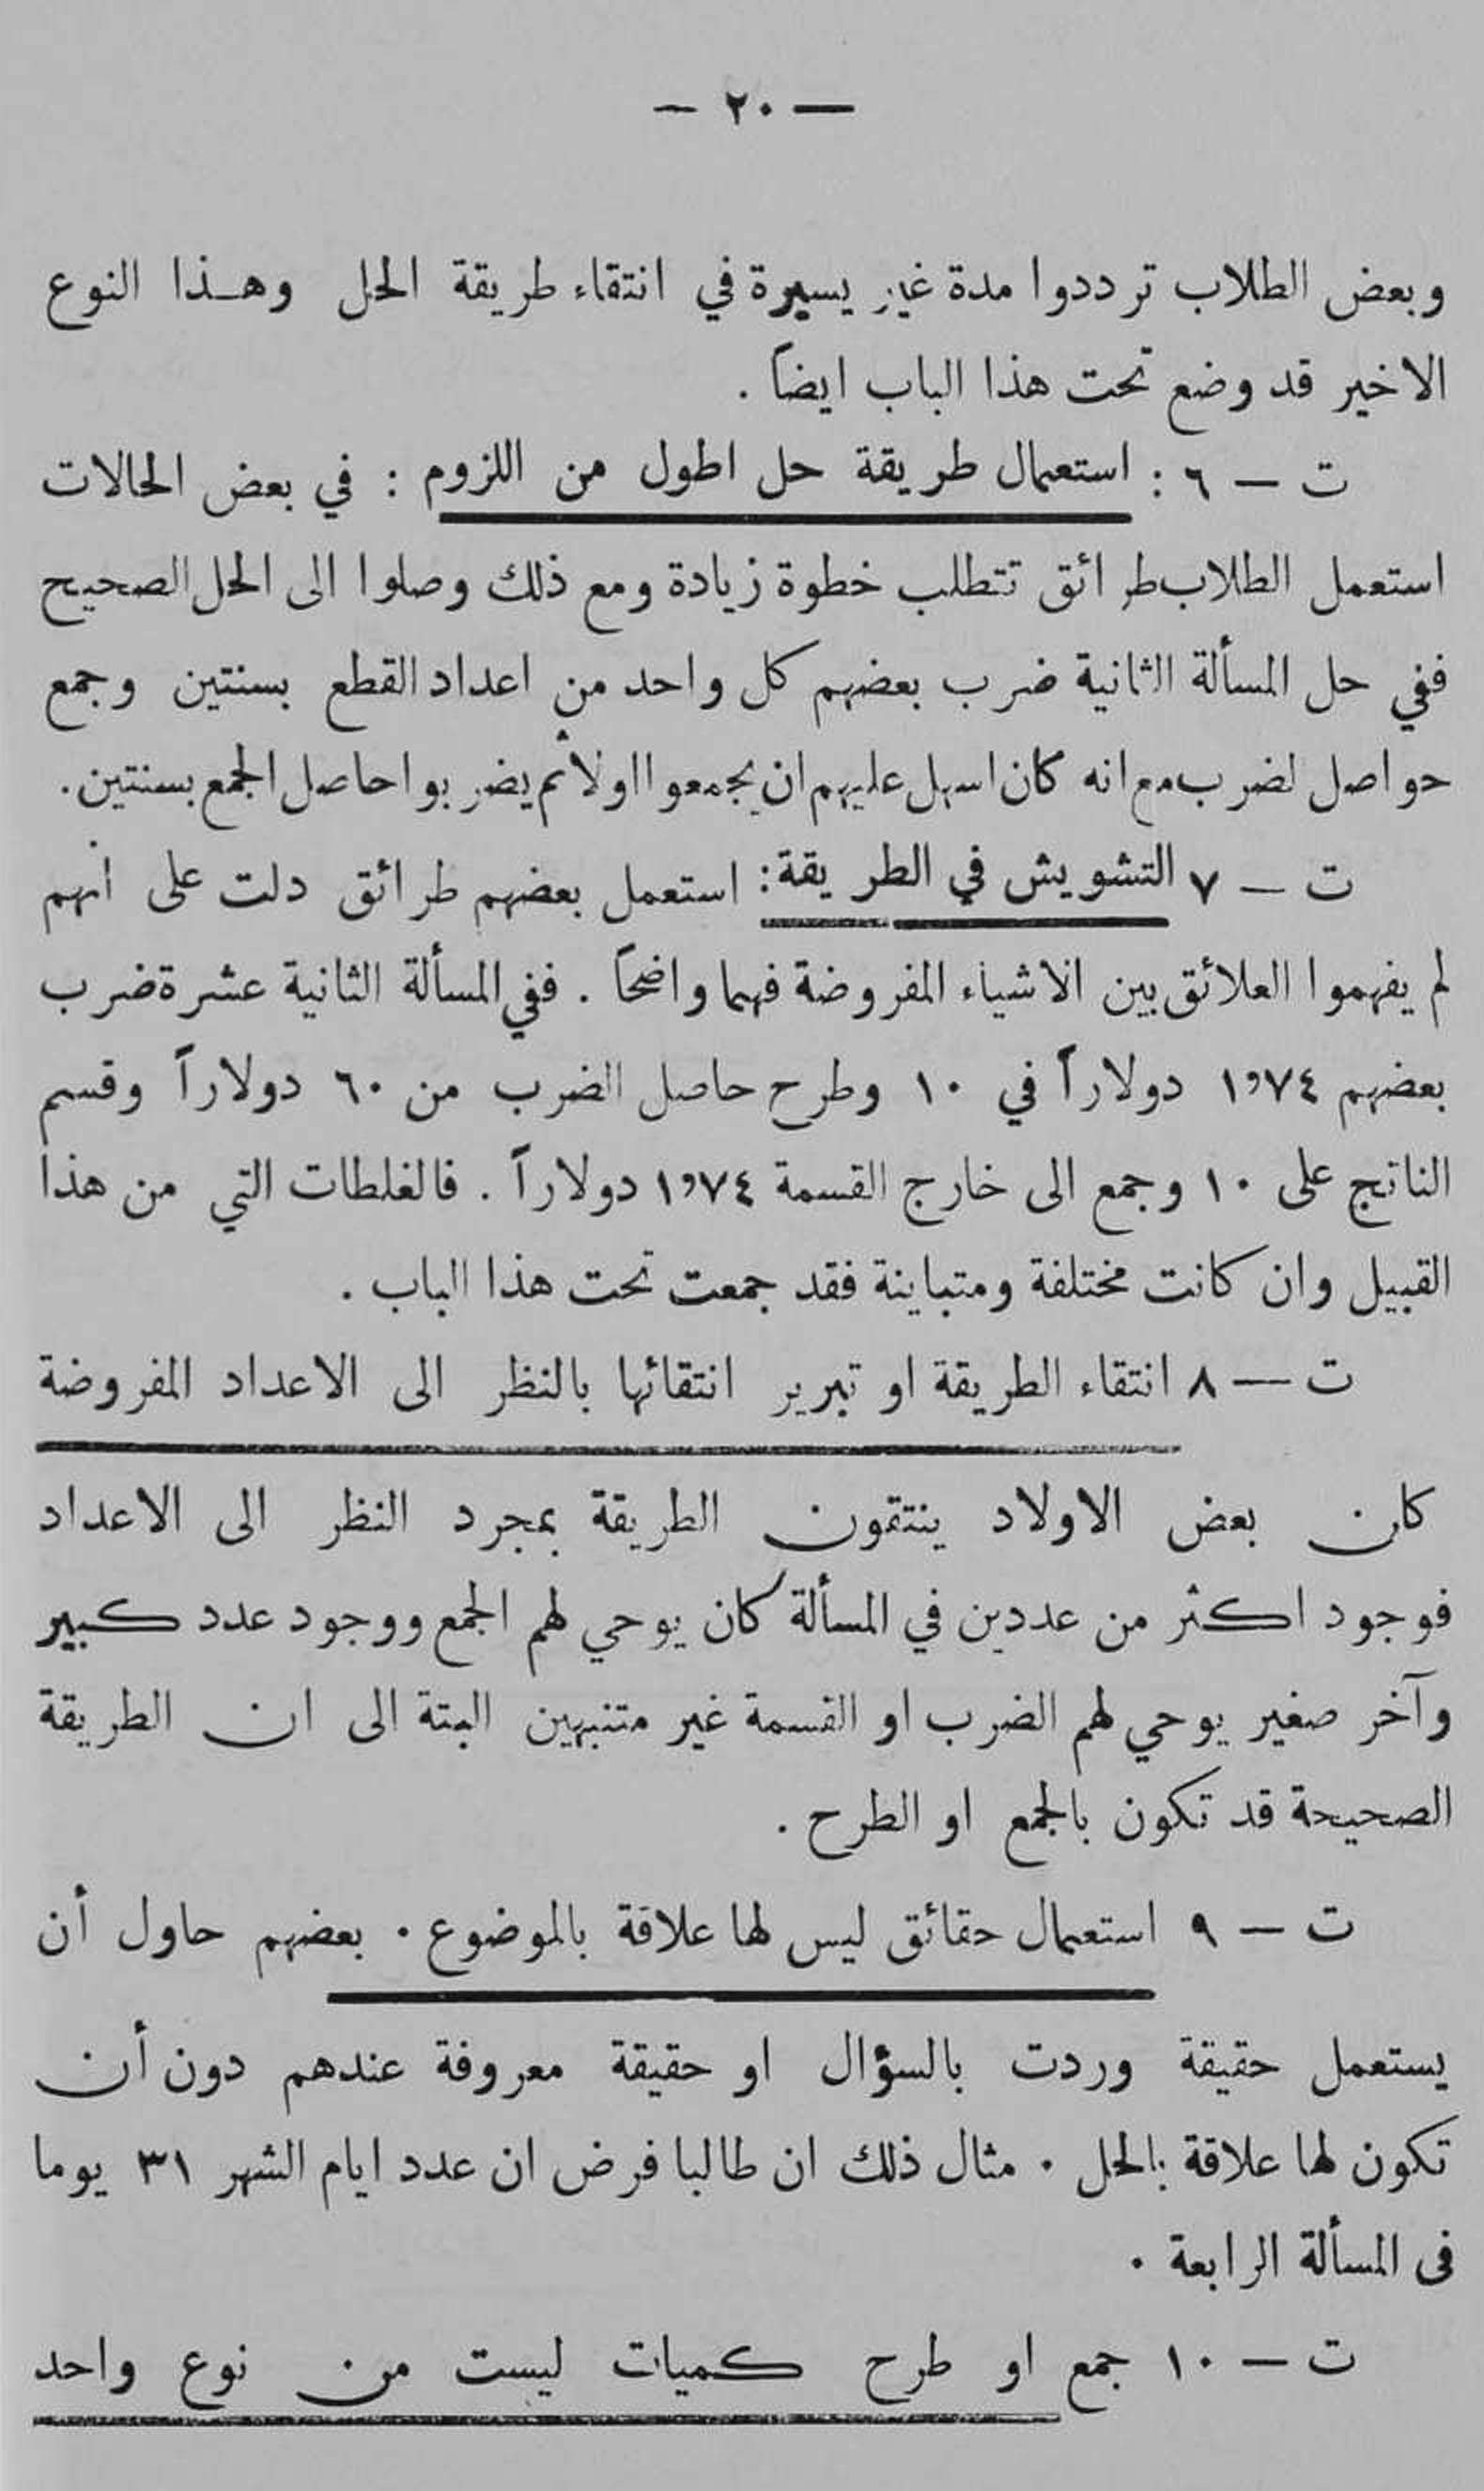 — ٢٠ —
وبعض الطلاب ترددوا مدة غير يسيرة في انتقاء طريقة الحل وهذا النوع
الاخير قد وضع تحت هذا الباب ايضاً .
ت — ٦ : استعمال طريقة حل اطول من اللزوم : في بعض الحالات
استعمل الطلاب طرائق تتطلب خطوة زيادة ومع ذلك وصلوا الى الحل الصحيح
ففي حل المسألة الثانية ضرب بعضهم كل واحد من اعداد القطع بسنتين وجمع
حواصل لضرب مع انه كان اسهل عليهم ان يجمعوا اولاً ثم يضربوا حاصل الجمع بسنتين .
ت — ٧ التشويش في الطريقة : استعمل بعضهم طرائق دلت على انهم
لم يفهموا العلائق بين الاشياء المفروضة فهما واضحاً . ففي المسألة الثانية عشرة ضرب
بعضهم ١٫٧٤ دولاراً في ١٠ وطرح حاصل الضرب من ٦٠ دولاراً وقسم
الناتج على ١٠ وجمع الى خارج القسمة ١٫٧٤ دولاراً . فالغلطات التي من هذا
القبيل وان كانت مختلفة ومتباينة فقد جمعت تحت هذا الباب .
ت — ٨ انتقاء الطريقة او تبرير انتقائها بالنظر الى الاعداد المفروضة
كان بعض الاولاد ينتقون الطريقة بمجرد النظر الى الاعداد
فوجود اكثر من عددين في المسألة كان يوحي لهم الجمع ووجود عدد كبير
وآخر صغير يوحي لهم الضرب او القسمة غير متنبهين البتة الى ان الطريقة
الصحيحة قد تكون بالجمع او الطرح .
ت — ٩ استعمال حقائق ليس لها علاقة بالموضوع . بعضهم حاول أن
يستعمل حقيقة وردت بالسؤال او حقيقة معروفة عندهم دون أن
تكون لها علاقة بالحل . مثال ذلك ان طالبا فرض ان عدد ايام الشهر ٣١ يوما
فى المسألة الرابعة .
ت — ١٠ جمع او طرح كميات ليست من نوع واحد